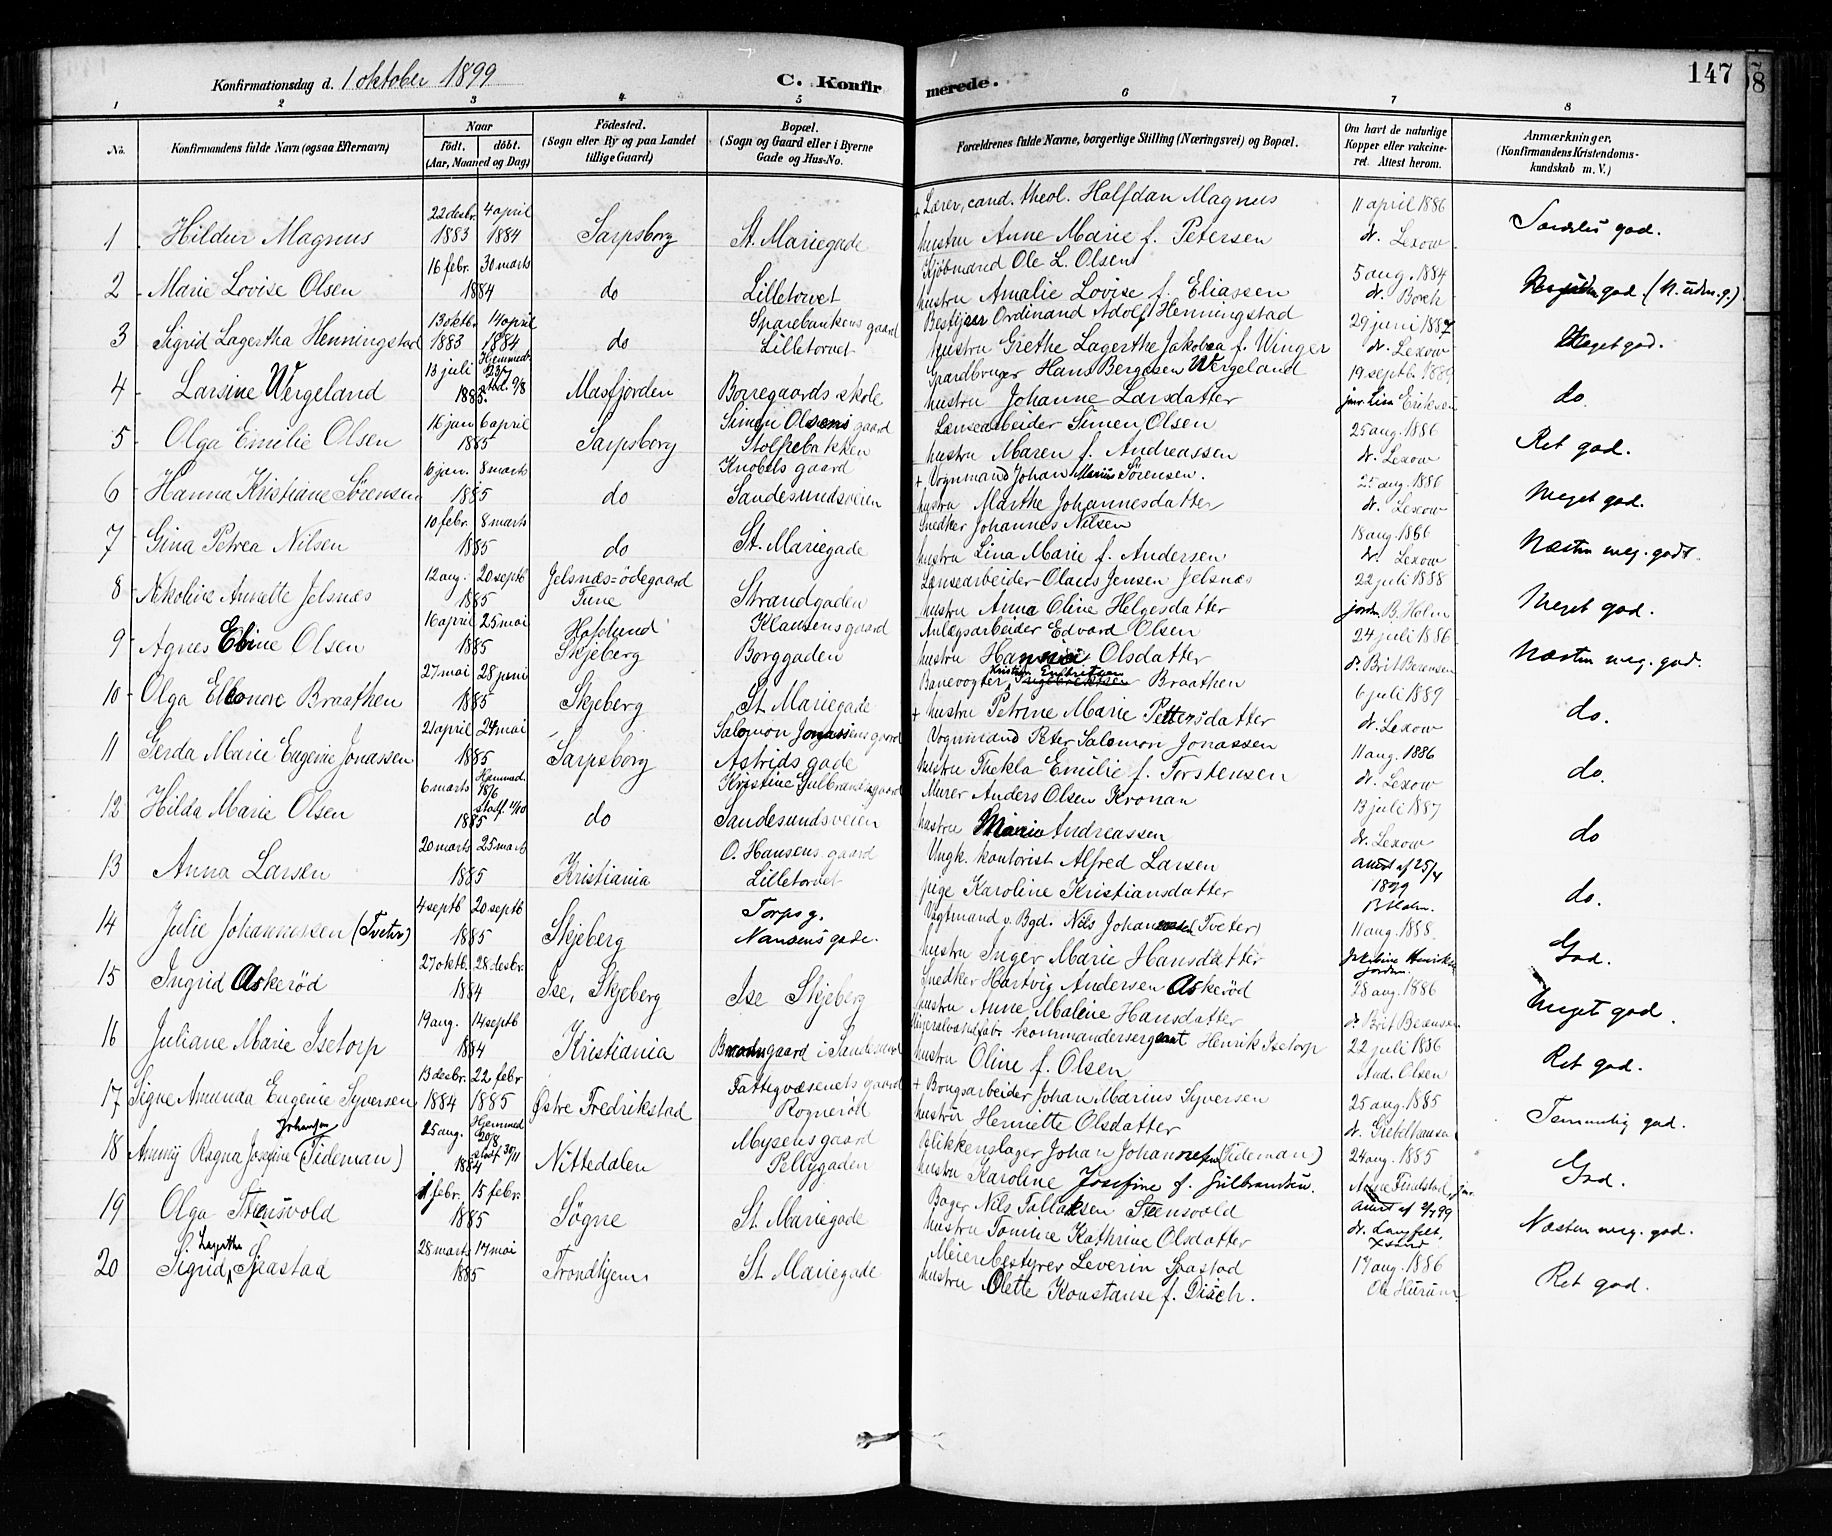 Konfirmationsdag d. 1 oktober 1899
C. Konfirmerede.
147
1 2 3 4 5 6 7 8
No.
Konfirmandens fulde Navn (ogsaa Efternavn)
Naar
født. døbt.
(Aar, Maaned og Dag)
Fødested.
(Sogn eller By og paa Landet
tillige Gaard)
Bopæl.
(Sogn og Gaard eller i Byerne
Gade og Hus-No.
Forældrenes fulde Navne, borgerlige Stilling (Næringsvei) og Bopæl.
Om havt de naturlige
Kopper eller vakcineret.
Attest herom.
Anmærkninger.
(Konfirmandens Kristendomskundskab
m. V.)
1 Hildur Magnus 22 desbr. 1883 4 april 1884 Sarpsborg St. Mariegade
+ Lærer, cand. theol. Halfdan Magnus
hustru Anne Marie f. Petersen
11 april 1886 dr. Lexow Særdeles god.
2 Marie Lovise Olsen 16 febr. 30 marts 1884 do Lilletorvet
Kjøbmand Ole L. Olsen
hustru Amalie Lovise f. Eliassen
5 aug. 1884 dr. Boch god (N. udm. g.)
3 Sigrid Lagertha Henningstad 13 oktbr. 1883 14 april 1884 do Sparebankens gaard Lilletorvet
Bestyrer Ordinand Adolf Henningstad
hustru Grethe Lagerthe Jakobea f. Winger
29 juni 1887 dr. Lexow Meget god.
4 Larsine Wergeland 13 juli Hjemmedb. 23/7 1885. Masfjorden Borregaards skole
Gaardbruger Hans Bergesen Wergeland
hustru Johanne Larsdatter
19 septb. do
5 Olga Emilie Olsen 16 jan 6 april 1885 Sarpsborg Simen Olsens gaard Stolpebakken
Lænsearbeider Simen Olsen
hustru Maren f. Andreassen
25 aug. 1886 dr. Lexow Ret god.
6 Hanna Kristiane Sørensen 6 jan. 8 marts 1885 do Knobels gaard Sandesundsveien
+ Vognmand Johan Marius Sørensen.
hustru Marthe Johannesdatter
25 aug. 1886 dr. Lexow Meget god.
7 Gina Petrea Nilsen 10 febr. 8 marts 1885 do St. Mariegade
Snedker Johannes Nilsen
hustru Lina Marie f. Andersen
18 aug. 1886 dr. Lexow Næsten meg. godt.
8 Nikoline Annette Jelsnæs 12 aug. 20 septb 1885 Jelsnæs=ødegaard Tune Strandgaden
Lænsearbeider Olaus Jensen Jelsnæs
hustru Anna Oline Helgesdatter
22 juli 1888 jordm. B. Holm Meget god.
9 Agnes Eline Olsen 16 april 25 mai 1885 Hafslund Skjeberg Klausens gaard Borggaden
Anlægsarbeider Edvard Olsen
hustru Olsdatter
24 juli 1886 dr Brit Berensen Næsten meg. god.
10 Olga Elleonore Braathen 27 mai 28 juni 1885 Skjeberg St. Mariegade
Banevogter Braathen
+ hustru Petrine Marie Pettersdatter
6 juli 1889 dr. Lexow do.
11 Gerda Marie Eugenie Jonassen 21 april 24 mai 1885 Sarpsborg Salomon Jonassens gaard Astrids gade
Vognmand Peter Salomon Jonassen
hustru Thekla Emilie f. Torstensen
11 aug. 1886 dr. Lexow do.
12 Hilda Marie Olsen 6 marts Hjemmed. 18/6 1885 do Kristine Gulbrandsens gaard Sandesundsveien
Murer Anders Olsen Kronan
hustru Marie Andreassen
13 juli 1887 dr. Lexow do
13 Anna Larsen 20 marts 25 marts 1885 Kristiania O. Hansens gaard Lilletorvet
Ungk. kontorist Alfred Larsen
pige Karoline Kristiansdatter
25/4 1899 B. Holm. do.
14 Julie Johannessen (Tveter) 4 septb 20 septb 1885 Skjeberg Torpsg. Nansens gade.
v. Bgd. Nils Johannessen (Tveter)
hustru Inger Marie Hansdatter
11 aug. 1888. jordm. God.
15 Ingrid Askerød 27 oktb. 28 desbr. 1884 Ise, Skjeberg Ise Skjeberg
Snedker Hartvig Andersen Askerød
hustru Anne Malene Hansdatter
28 aug. 1886 dr Brit Berensen Meget god.
16 Juliane Marie Isetorp 19 aug. 14 septb 1884 Kristiania gaard i Sandesund
kommandersergeant Henrik Isetorp
hustru Oline f. Olsen
22 juli 1886 And. Olsen Ret god.
17 Signe Amunda Eugenie Syversen 13 desbr. 1884 22 febr 1885 Østre Fredrikstad Fattigvæsenets gaard Rognerød
+ Bougsarbeider Johan Marius Syversen
hustru Henriette Olsdatter
25 aug. 1885 dr. Giebelhausen Temmelig god.
18 Ammy Ragna Josefine Johansen (Tideman) 25 aug. Hjemmed 20/8 1884 30/11 Nittedalen Mysens gaard Pellygaden
Blikkenslager Johan Johannesen (Tideman)
hustru Karoline Josefine f. Gulbrandsen.
24 aug. 1885 God.
19 Olga Stensvold 1 febr. 15 febr. 1885 Søgne St. Mariegade
Bager Nils Tallaksen Stensvold
hustru Tomine Kathrine Olsdatter
dr. Næsten meg. god.
20 Sigrid Lagertha Sjaastad 28 marts 17 mai 1885 Trondhjem St. Mariegade
Meieribestyrer Leverin Sjaastad
hustru Olette Konstanse f. Disch.
17 aug. 1886 Ole Hurum Ret god.